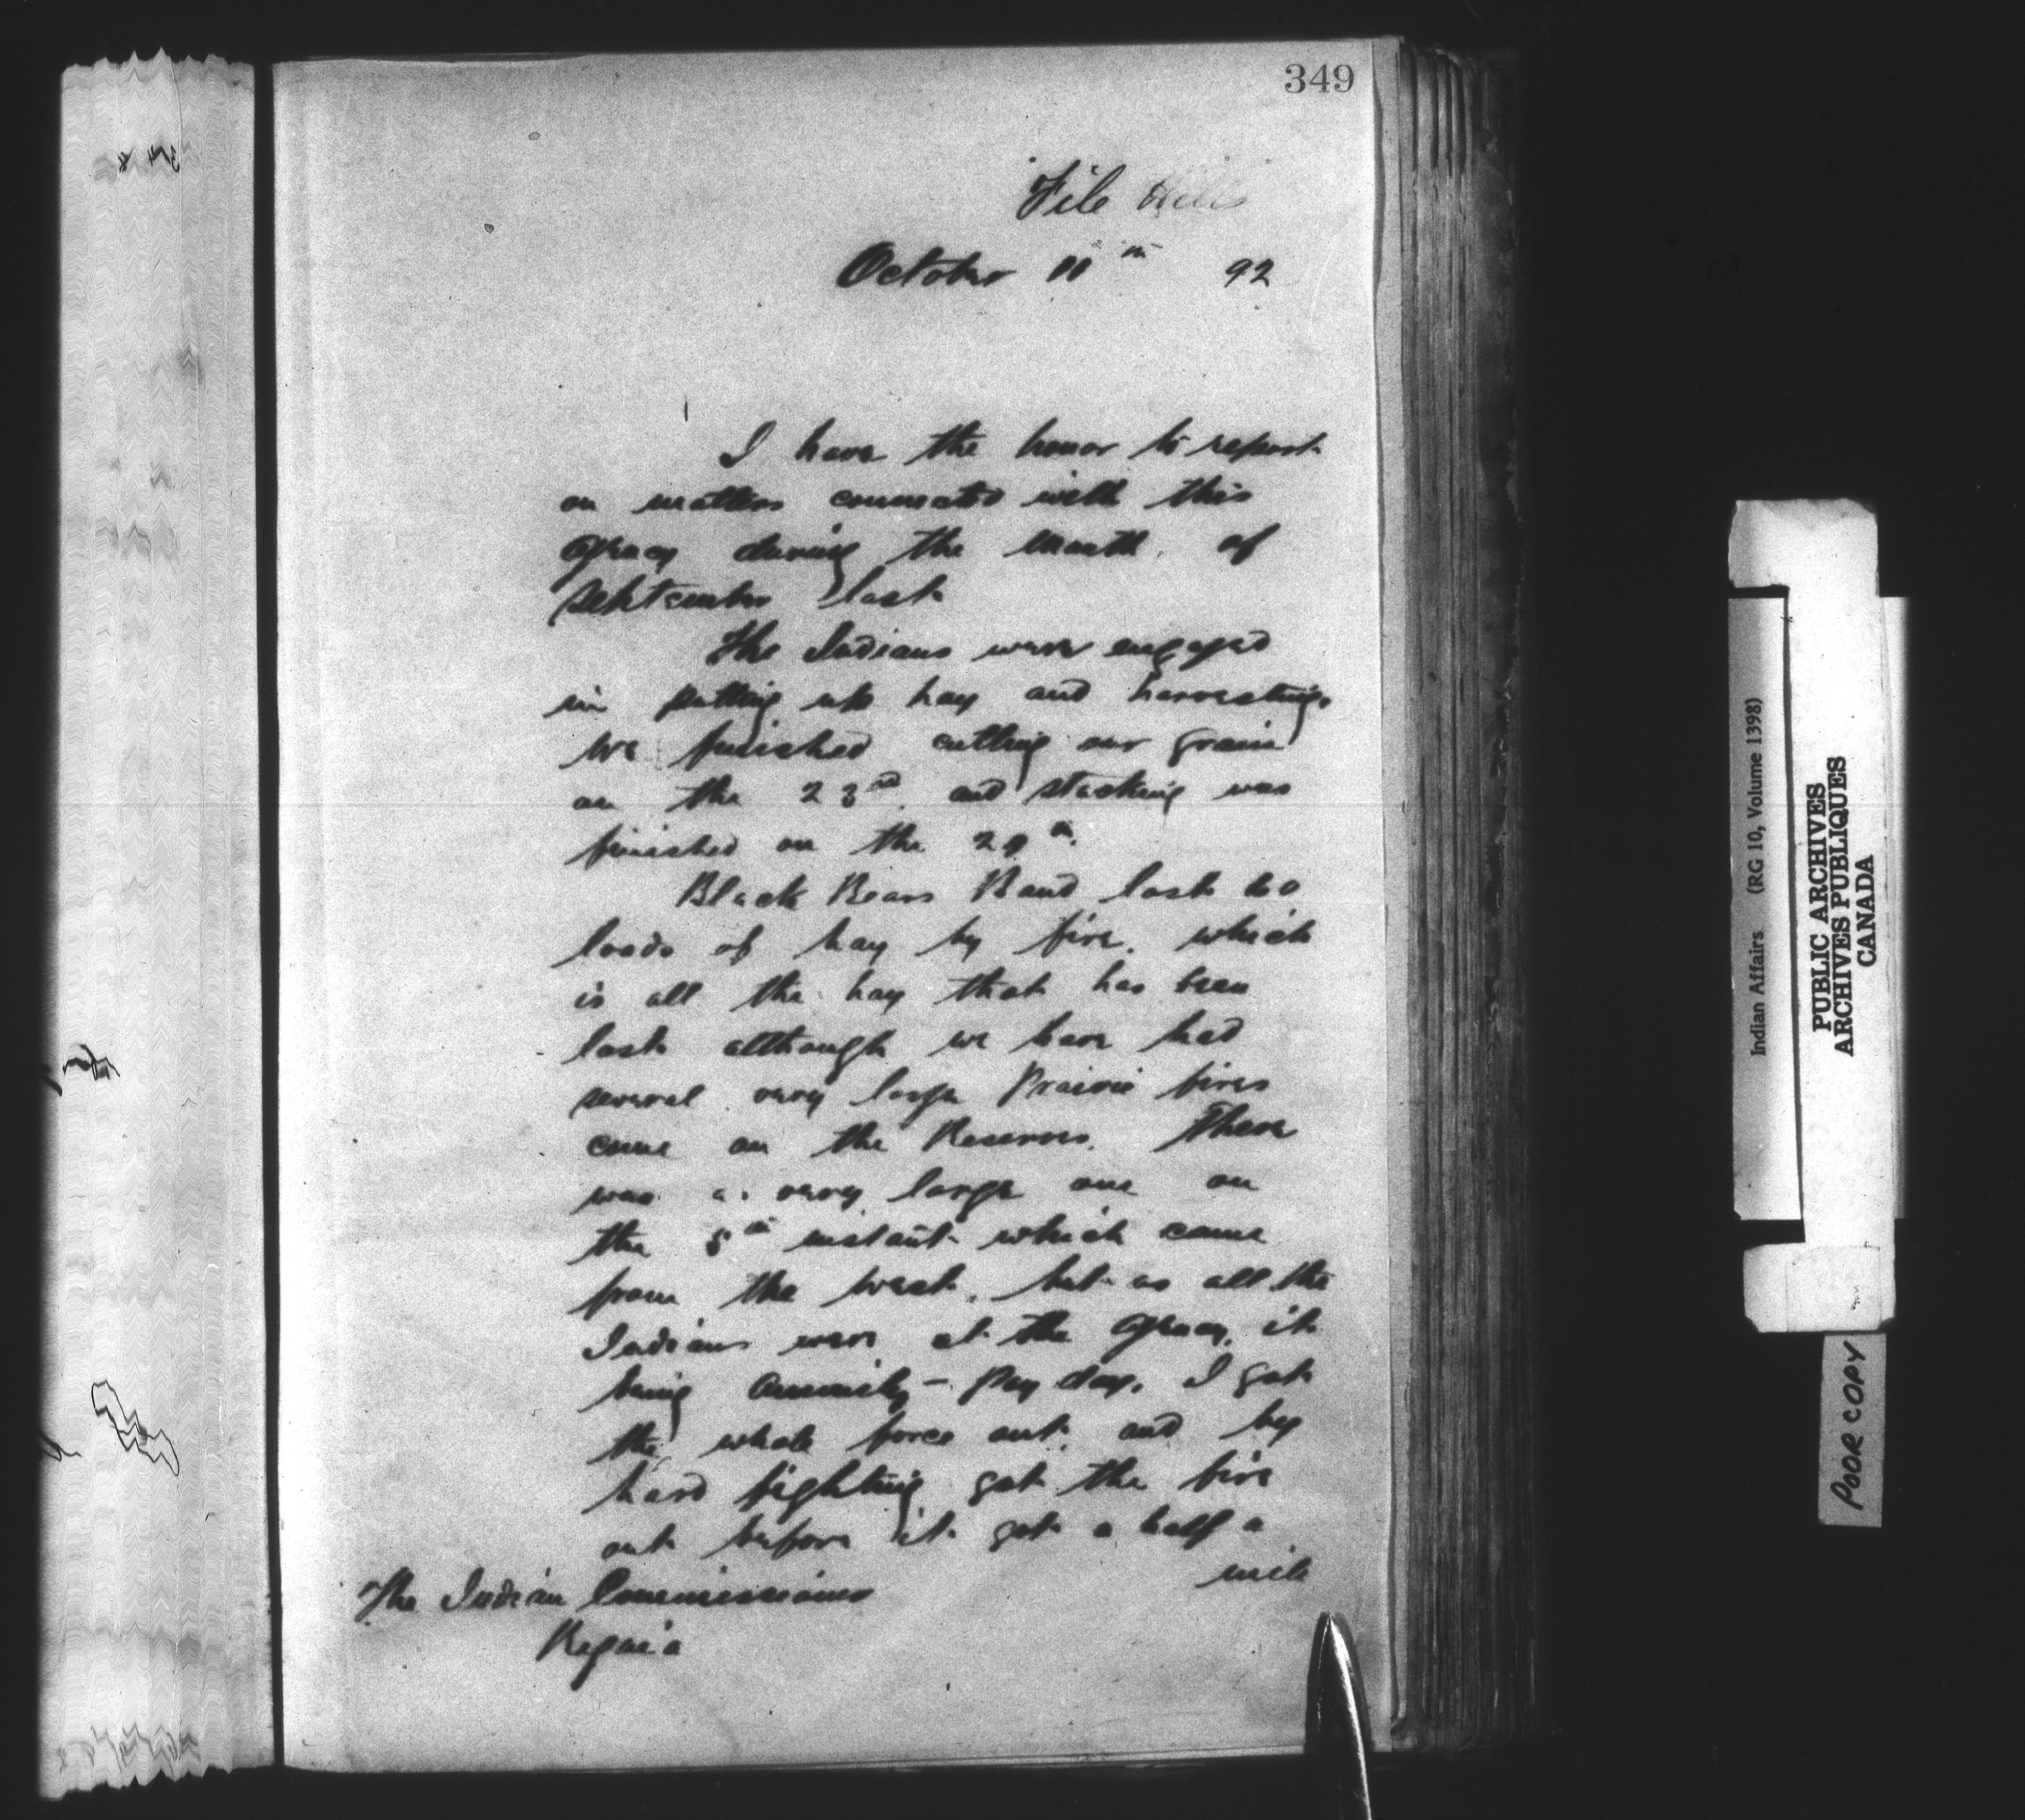 349
File Hills
October 11th 92
I have the honor to report
on matters connected with this
Agency during the month of
September last
The Indians were engaged
in putting up hay and harvesting.
We finished cutting our grain
on the 23rd and stacking was
finished on the 29th.
Black Bears Band lost 60
loads of hay by fire, which
is all the hay that has been
lost although we have had
several very large Prairie fires
come on the Reserves. There
was a very large one on
the 5th instant which came
from the west, but as all the
Indians were at the Agency, it
being Annuity - Pay day, I got
the whole force out, and by
hard fighting got the fire
out before it got a half a
mile
The Indian Commissioner
Regina
Indian Affairs (RG 10, Volume 1398)
PUBLIC ARCHIVES
ARCHIVES PUBLIQUES
CANADA
POOR COPY